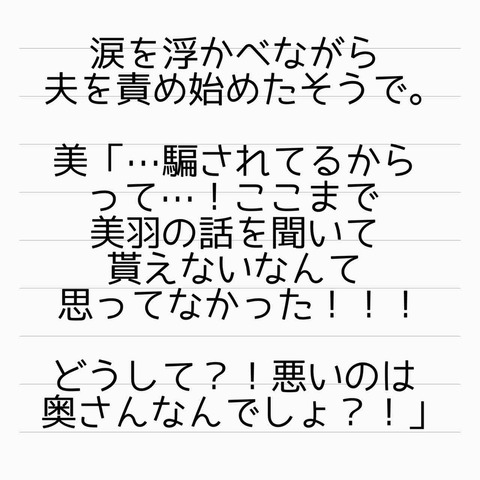 涙を浮かべながら
夫を責め始めたそうで。
美「…騙されてるから
って…！ここまで
美羽の話を聞いて
貰えないなんて
思ってなかった！！！
どうして？！悪いのは
奥さんなんでしょ？！」